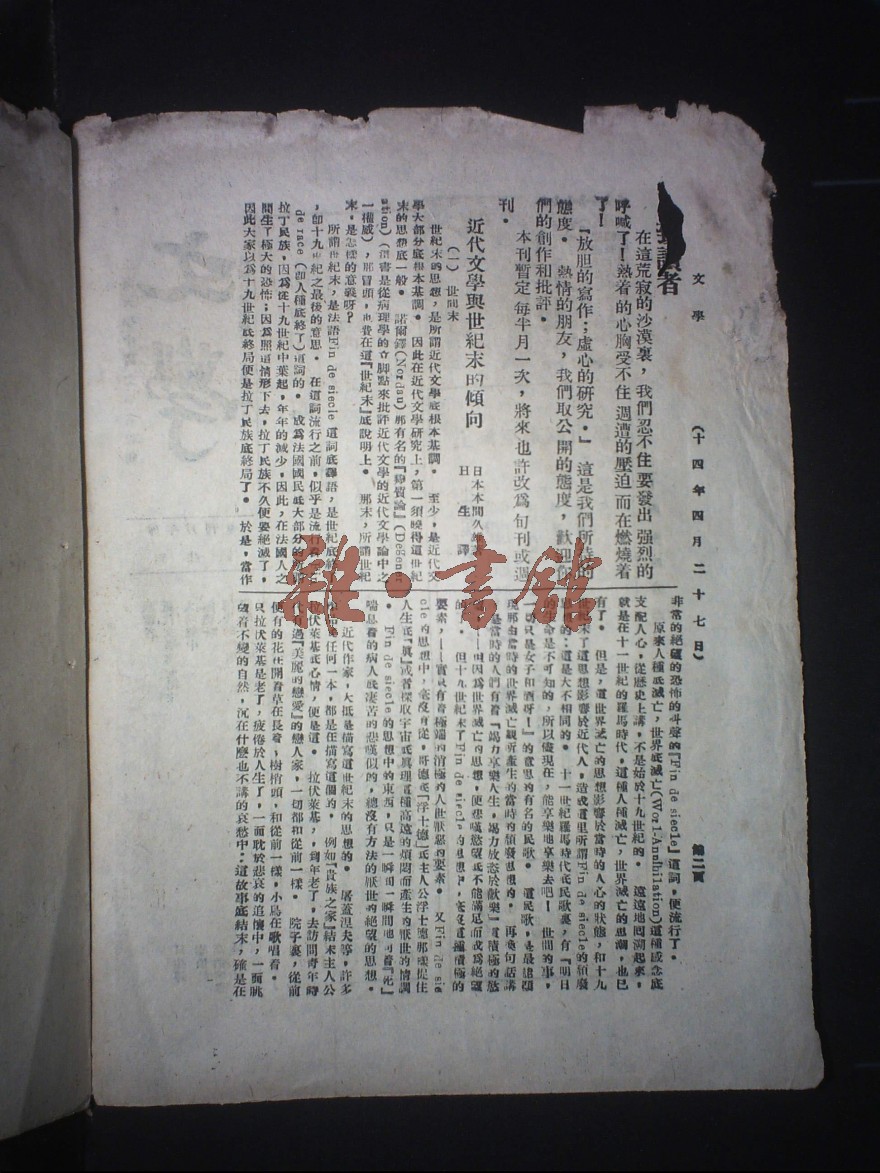 文學
(十四年四月二十七日)
第二頁
讀者
在這荒寂的沙漠裏,我們忍不住要發出强烈的
呼喊了!熱着的心胸受不住週遭的壓迫而在燃燒着
了!
『放胆的寫作;虛心的研究。』這是我們所持的
態度。熱情的朋友,我們取公開的態度,歡迎你
們的創作和批評。
本刊暫定每半月一次,將來也許改爲旬刊或週
刊。
近代文學與世紀末的傾向
日本本間久雄著
日生譯
(一)世間末
世紀末的思想,是所謂近代文學底根本基調。至少,是近代文
學大部分底根本基調。因此在近代文學研究上,第一須曉得這世紀
末的思想底一般。諾爾鐸(Nordau)那有名的『變質論』(Degener
ation)(這書是從病理學的立脚點來批評近代文學的近代文學論中之
一權威),那冒頭,也費在這『世紀末』底說明上。那末,所謂世紀
末,是怎樣的意義呀?
所謂世紀末,是法語Fin de siecle這詞底譯語,是世紀底終
,卽十九世紀之最後的意思。在這詞流行之前,似乎是流行着
de race(卽人種底終了)這詞的。成爲法國國民底大部分的
拉丁民族,因爲從十九世紀中葉起,年年的減少,因此,在法國人之
間生了極大的恐怖;因爲照這情形下去,拉丁民族不久便要絕滅了,
因此大家以爲十九世紀底終局便是拉丁民族底終局了。於是,當作
非常的絕望的恐怖的叫聲的『Fin de siecle』這詞,便流行了。
原來人種底滅亡,世界底滅亡(Worl-Annihilation)這種感念底
支配人心,從歷史上講,不是始於十九世紀的。遠遠地囘溯起來,
就是在十一世紀的羅馬時代,這種人種滅亡,世界滅亡的思潮,也已
有了。但是,這世界滅亡的思想影響於當時的人心的狀態,和十九
世紀末了這思想影響於近代人,造成這里所謂Fin de siecle的頹廢
思想的:這是大不相同的。十一世紀羅馬時代底民歌裏,有『明日
的生命是不可知的,所以儘現在,能享樂地享樂去吧!世間的事,
一切只是女子和酒呀!』的意思的有名的民歌。這民歌,是最能表
現那由當時的世界滅亡觀所產生的當時的頹廢思想的。再換句話講
,是當時的人們有着『竭力享樂人生,竭力放恣於歡樂』這積極的慾
的。但十九世紀末了Fin de siecle的思想中,毫沒有這種積極的
要素,——實只有着極端的消極的人世厭惡的要素。又Fin de sie
cle的思想中,毫沒有從,哥德底『浮士德』底主人公浮士德那樣捉住
人生底『眞』或者探取宇宙底眞理這種高遠的煩悶而產生的厭世的情調
。Fin de siecle的思想中的東西,只是一瞬間一瞬間地向着『死』
喘息着的病人底凄苦的悲嘆似的,總沒有方法的厭世的絕望的思想。
近代作家,大抵是描寫這世紀末的思想的。屠蓋涅夫等,許多
作品的任何一本,都是在描寫這個的。例如『貴族之家』結末主人公
拉伏萊基底心情,便是這。拉伏萊基,到年老了,去訪問青年時
代有過『美麗的戀愛』的戀人家,一切都和從前一樣。院子裏,從前
便有的花在開着草在長着,樹梢頭,和從前一樣,小鳥在歌唱着。
只拉伏萊基是老了,疲倦於人生了,一面耽於悲哀的追懷中,一面眺
望着不變的自然,沉在什麼也不講的哀愁中:這故事底結末,確是在
雜·書館